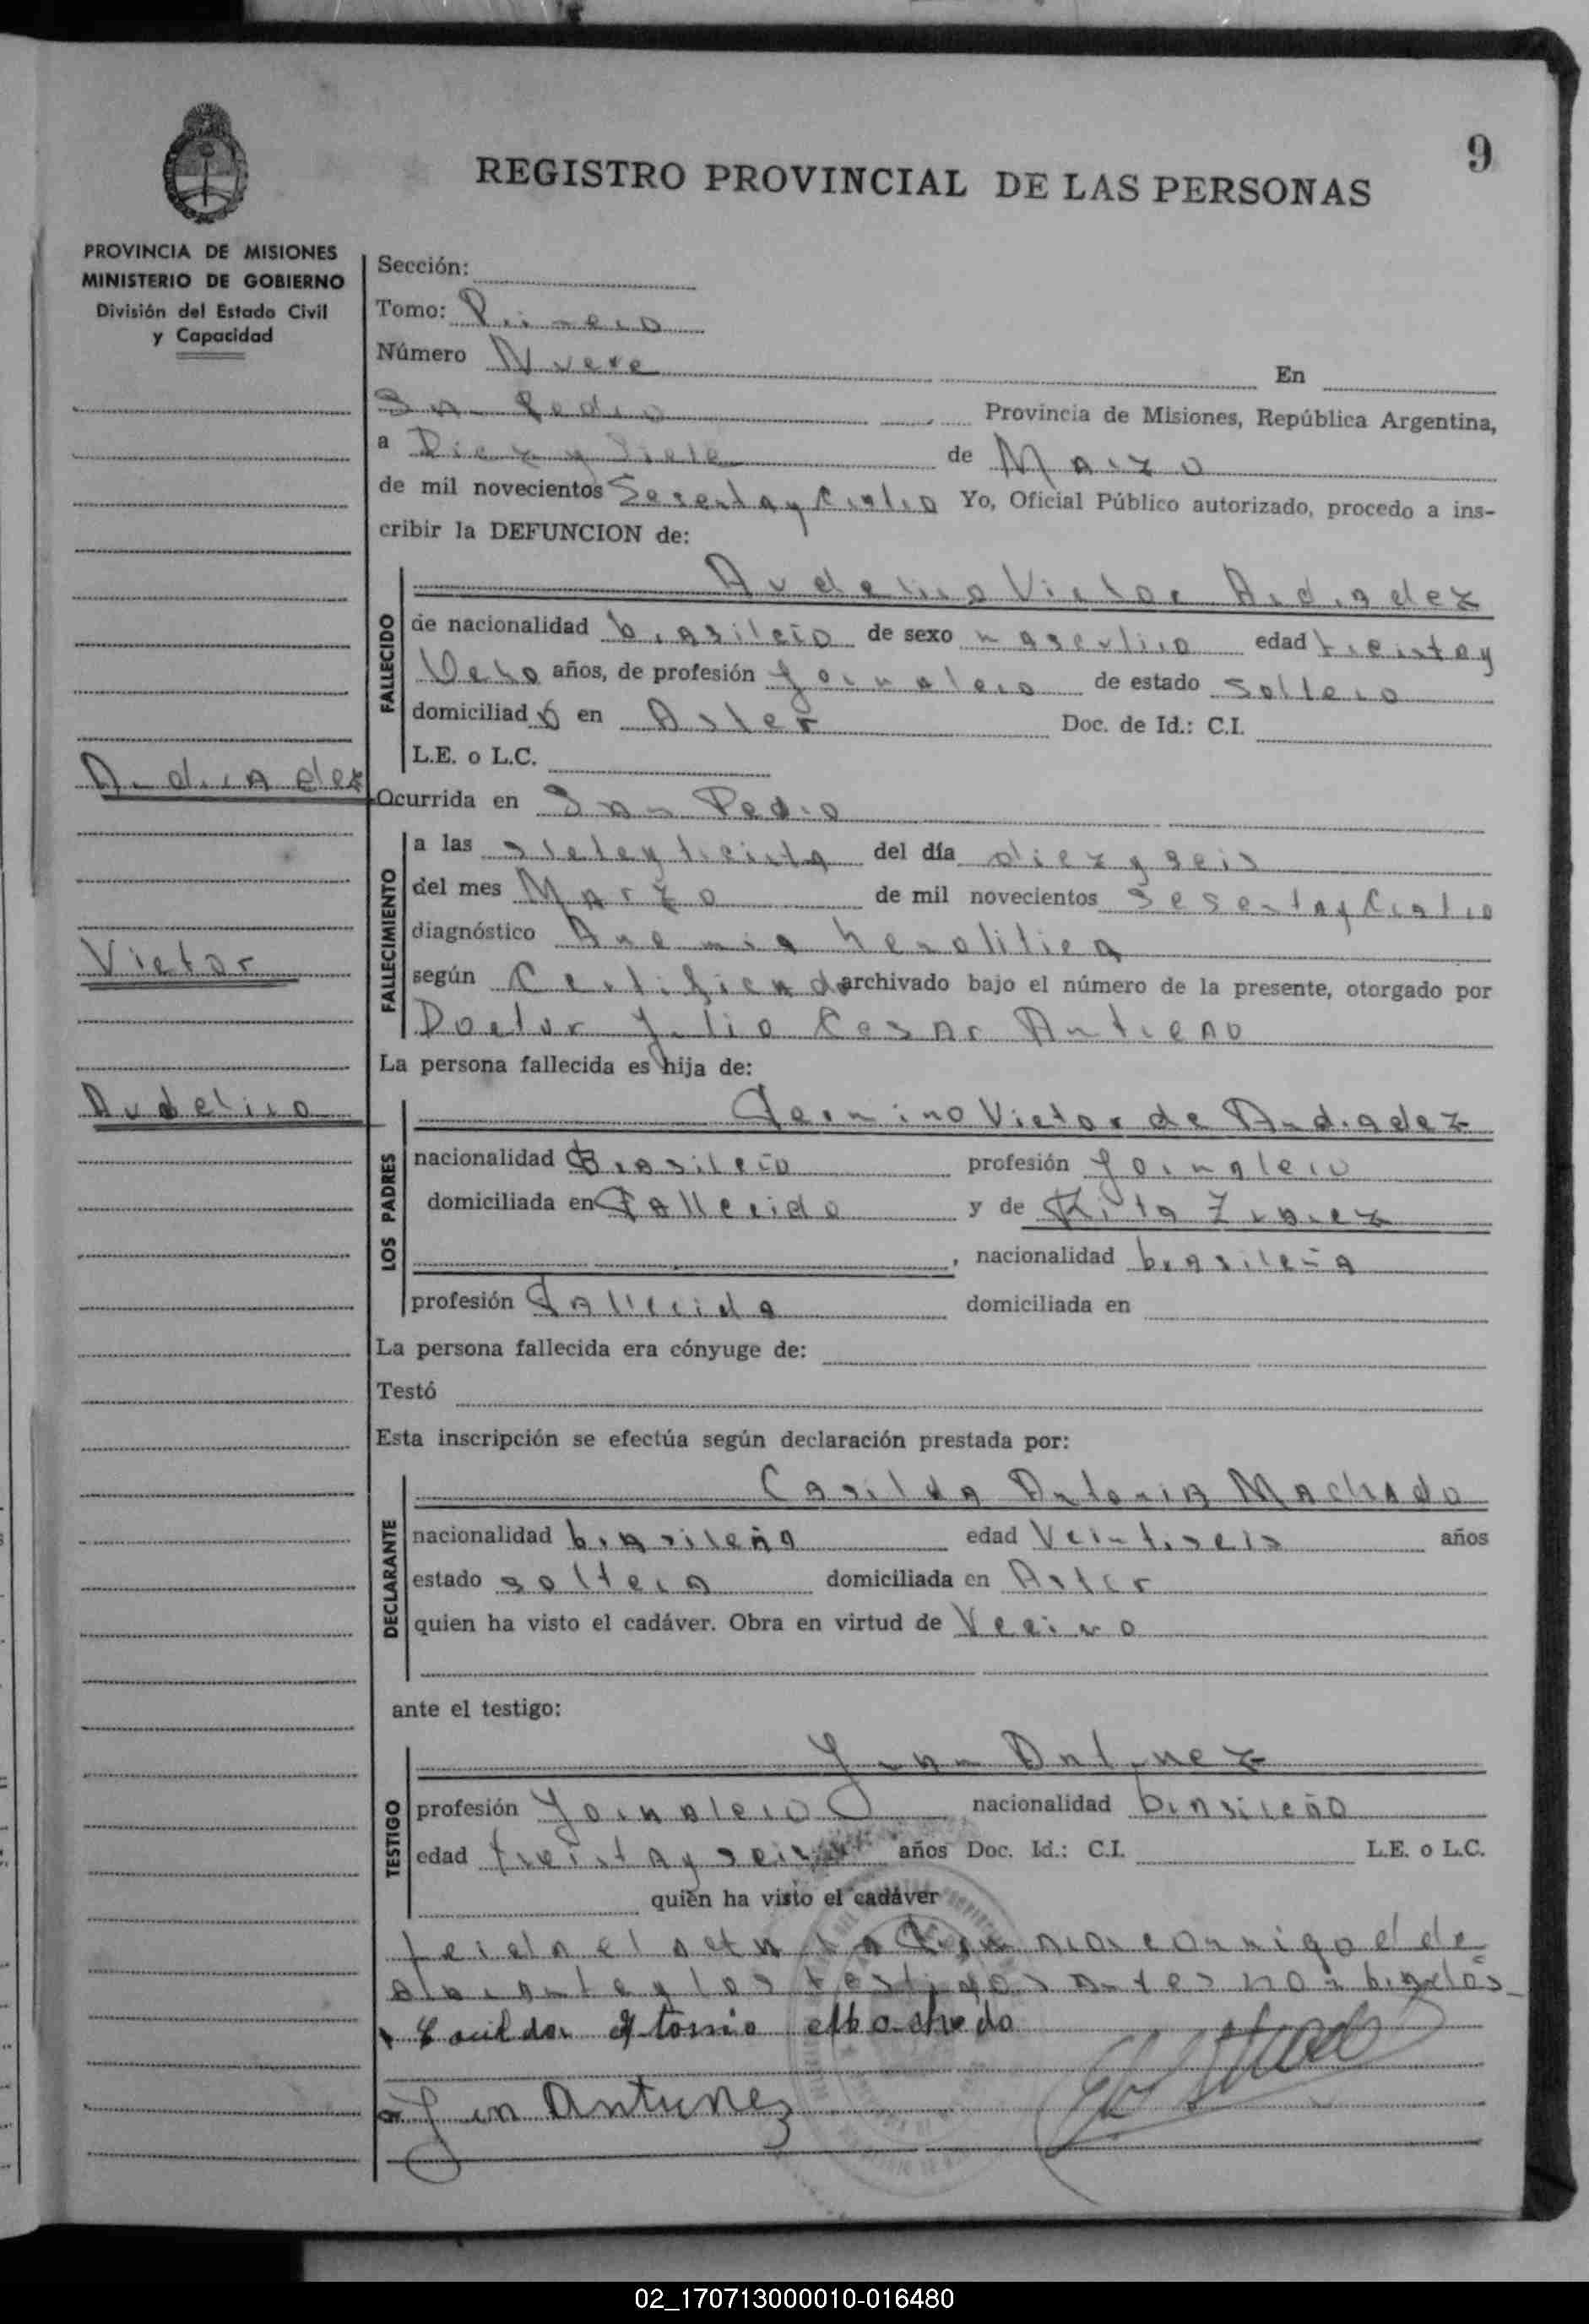 9
REGISTRO PROVINCIAL DE LAS PERSONAS
PROVINCIA DE MISIONES
MINISTERIO DE GOBIERNO
División del Estado Civil
y Capacidad
Andradez
Victor
Sección:
Tomo: Primero
Número Nueve En
San Pedro Provincia de Misiones, República Argentina,
a Diez y Siete de Marzo
de mil novecientos Sesenta y Cuatro Yo, Oficial Público autorizado, procedo a ins-
cribir la DEFUNCION de:
Victor Andradez
FALLECIDO
de nacionalidad brasileño de sexo masculino edad treinta y
Ocho años, de profesión Jornalero de estado soltero
domiciliado en Aster Doc. de Id.: C.I.
L.E. o L.C.
Ocurrida en San Pedro
FALLECIMIENTO
a las siete y treinta del día diez y seis
del mes Marzo de mil novecientos Sesenta y Cuatro
diagnóstico Anemia hemolitica
según Certificado archivado bajo el número de la presente, otorgado por
Doctor Julio Cesar
La persona fallecida es hija de:
LOS PADRES
Victor de Andradez
nacionalidad Brasileño profesión Jornalero
domiciliada en Fallecido y de Rita
, nacionalidad brasileña
profesión Fallecida domiciliada en
La persona fallecida era cónyuge de:
Testó
Esta inscripción se efectúa según declaración prestada por:
DECLARANTE
Casilda Antonia Machado
nacionalidad brasileña edad Veintiseis años
estado soltera domiciliada en Aster
quien ha visto el cadáver. Obra en virtud de Vecino
ante el testigo:
TESTIGO
Juan Antunez
profesión Jornalero nacionalidad brasileño
edad treinta y seis años Doc. Id.: C.I. L.E. o L.C.
quién ha visto el cadáver
Leida el acta la firman conmigo el de-
clarante y los testigos antes nombrados
Antunez
02_170713000010-016480